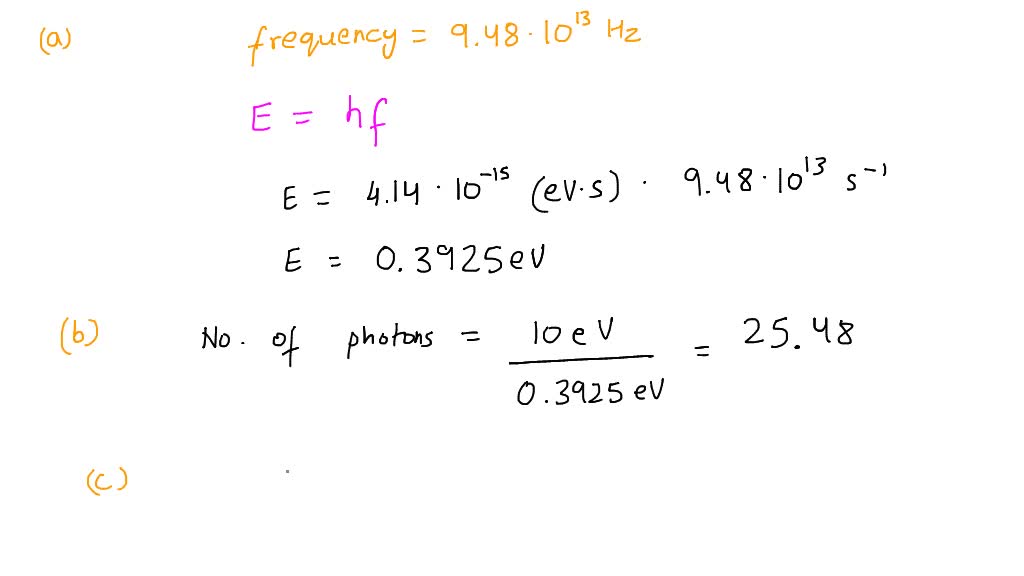 (a) frequency = 9.48 · 10¹³ Hz
E = hf
E = 4.14 · 10⁻¹⁵ (eV·s) · 9.48 · 10¹³ s⁻¹
E = 0.3925 eV
(b) No. of photons = 10 eV / 0.3925 eV = 25.48
(c)